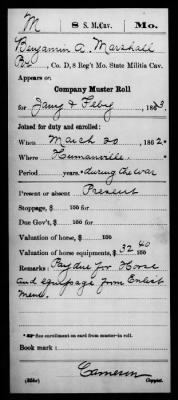 M 8 S. M. Cav. Mo.
Benjamin A. Marshall
Co. D, 8 Reg't Mo. State Militia Cav.
Appears on
Company Muster Roll
for Jany & Feby, 1863.
Joined for duty and enrolled:
When March 20, 1862.*
Where Humansville.
Period years. during the war
Present or absent Present
Stoppage, $ 100 for
Due Gov't, $ 100 for
Valuation of horse, $ 100
Valuation of horse equipments, $ 32 40/100
Remarks Pay due for Horse
and equipage from Enlist
ment.
* See enrollment on card from muster-in roll.
Book mark:
Cameron
(358c) Copyist.